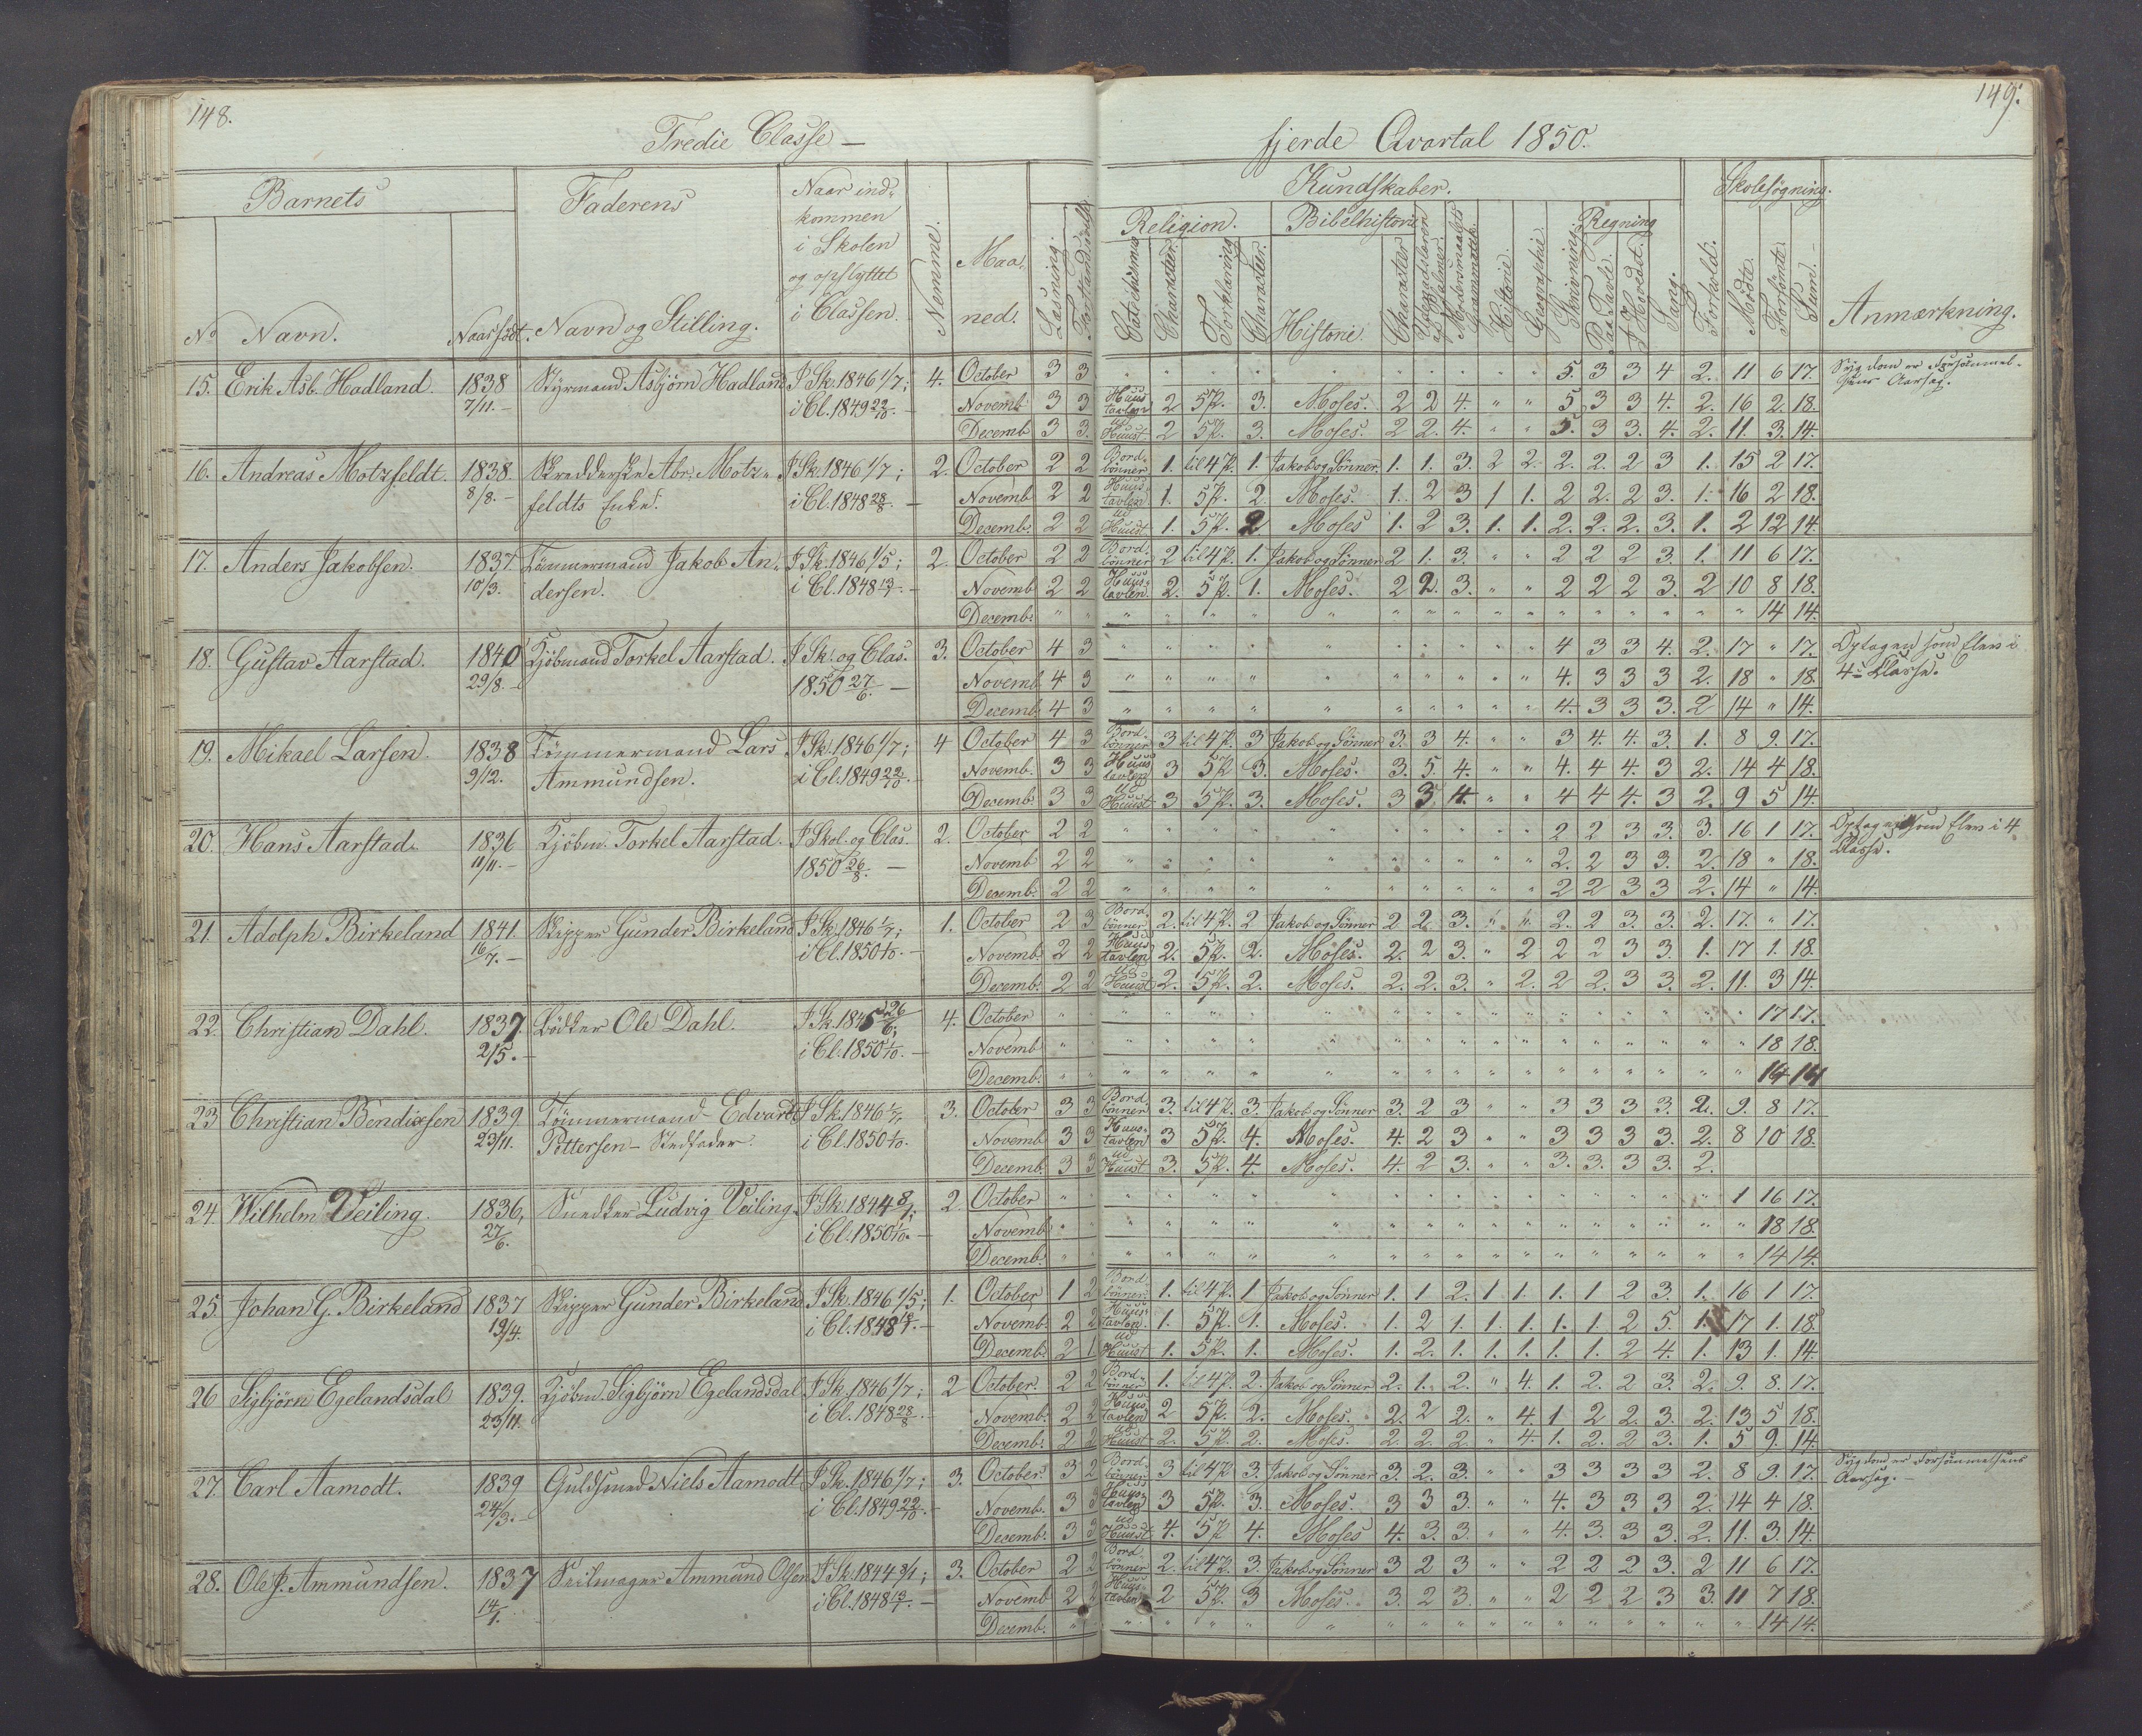 148.
149.
Tredie Classe —
fjerde Qvartal 1850.
Barnets
Faderens
Naar ind-
kommen
i Skolen
og opflyttet
i Classen.
Nemme.
Maa-
ned.
Kundskaber.
Skolesøgning.
Læsning.
Religion.
Bibelhistorie
Regning
Catechismus
Character.
Forklaring
Character.
Historie.
Character
Modersmaalets
Historie.
Geographie.
Skrivning.
Paa Tavle.
I Hovedet.
Sang.
Forhold.
Mødte.
Forsømte.
Sum.
Anmærkning.
No Navn. Naar født. Navn og Stilling.
15. Erik Asb. Hadland. 1838 Styrmand Asbjørn Hadland I Sk. 1846 1/7; 4. October 3 3 5. 3 3 4 2. 11 6 17. Sygdom er
7/11. i Cl. 1849 22/10. Novemb. 3 3 Huus tavlen 2 5 P. 3. Moses. 2 2 4. " " 5 3 3 4. 2. 16 2. 18.
Decemb 3 3. ud Huust. 2 5 P. 3. Moses. 2 2. 4. " " 5. 3 3. 4. 2. 11. 3. 14.
16. Andreas Motzfeldt. 1838. Skredderske Abr. Motz- I Sk. 1846 1/7; 2. October 2 2 Bord- bønner 1. til 4 P. 1. Jakob og Sønner. 1. 1. 3. 2 2. 2. 2. 2 3 1. 15 2 17.
8/8. feldts Enke. i Cl. 1848 28/8. Novemb 2 2 Huus- tavlen 1. 5 P. 2 Moses. 1. 2 3 1 1. 2 2. 2 3. 1. 16 2 18.
Decemb. 2 2 ud Huust 1. 5 P. 2 Moses 1. 2 3. 1. 1. 2. 2. 2. 3. 1. 2 12 14.
17. Anders Jakobsen. 1837. Tømmermand Jakob An- I Sk. 1846 1/5; 2. October 2 2 Bord- bønner 2 til 4 P. 1. Jakob og Sønner 2 1. 3. " " 2 2 2 3. 1. 11 6 17.
10/3. dersen. i Cl. 1848 13/7. Novemb 2 2 Huus- tavlen. 2. 5 P. 1. Moses. 2 2. 3. " " 2 2 2 3. 2 10 8 18.
Decemb. 14 14.
18. Gustav Aarstad. 1840 Kjøbmand Torkel Aarstad. I Sk. og Clas. 3. October 4 3 4 3 3 4. 2. 17 " 17. Optagen som Elev i
29/8. 1850 27/6. Novemb 4 3 4. 3 3 3 2. 18 " 18. 4de Classe.
Decemb. 4 3 4. 3 3 3. 2 14 " 14.
19. Mikael Larsen. 1838 Tømmermand Lars I Sk. 1846 1/7; 4 October 4 3 Bord- bønner 3 til 4 P. 3 Jakob og Sønner 3. 3 4. " " 3 4. 4. 3. 1. 8 9. 17.
9/12. Ammundsen. i Cl. 1849 22/10. Novemb. 3 3 Huus tavlen 3 5 P. 3. Moses. 3. 5. 4. " " 4. 4 4. 3 2. 14 4 18.
Decemb. 3 3 ud Huust 3 5 P. 3. Moses. 3 3 4. " " 4 4 4. 3 2. 9 5 14.
20. Hans Aarstad. 1836 Kjøbm. Torkel Aarstad. I Skol. og Clas. 2. October 2 2 2 2 3 3. 3. 16 1 17. Optagen som Elev i 4
11/11. 1850 26/8. Novemb 2 2 2. 2 3 3. 2. 18 " 18. Classe.
Decemb. 2 2 2 2 3 3 2. 14 " 14.
21 Adolph Birkeland 1841. Skipper Gunder Birkeland I Sk. 1846 1/7; 1. October 2 3 Bord- bønner 2. til 4 P. 2 Jakob og Sønner 2 2. 3. " " 2. 2 3. 3. 2. 17. " 17.
16/7. i Cl. 1850 1/10. Novemb. 2 2 Huus tavlen 2. 5 P. 2. Moses. 2. 2 3. " 2 2 2 3 3. 1. 17 1. 18.
Decemb. 2 2 ud Huust 2. 5 P. 2. Moses. 2. 2. 3. " 2. 2 2. 3 3. 2. 11. 3 14.
22. Christian Dahl. 1837. Bødker Ole Dahl. I Sk. 1845 26/6; 4. October 17 17.
2/5. i Cl. 1850 1/10. Novemb 18 18.
Decemb. 14 14
23 Christian Bendixsen 1839. Tømmermand Edvard I Sk. 1846 1/7. 3. October 3 3 Bord- bønner 3. til 4 P. 3. Jakob og Sønner 3. 2 3 " " 3 3 3 3. 2. 9. 8 17.
23/11. Pettersen - Stedfader. i Cl. 1850 1/10. Novemb 3 3 Huus- tavlen 3 5 P. 4. Moses. 4. 2 3 " " 3 3 3 3. 2. 8 10 18.
Decemb. 3 3 ud Huust 3. 5 P. 4. Moses. 4. 2 3. " " 3. 3. 3 3. 2.
24. Wilhelm Veiling. 1836, Snedker Ludvig Veiling. I Sk. 1844 8/1; 2. October 1 16 17.
27/6. i Cl. 1850 1/10. Novemb. 18 18.
Decemb. 14 14.
25. Johan G. Birkeland 1837 Skipper Gunder Birkeland I Sk. 1846 1/5; 1. October 1 2 Bord- bønner 1. til 4 P. 1 Jakob og Sønner 1. 1 2. 1 1. 1. 1 2 3. 1. 16 1 17.
19/4. i Cl. 1848 Novemb. 2 2 Huus- tavlen. 1. 5 P. 1. Moses. 1. 2 1. 1. 1. 1. 1. 2 5. 1. 17 1. 18.
Decemb. 2 1 ud Huust 1. 5 P. 1. Moses. 1. 2. 1. 1. 1. 1. 1. 2 4. 1. 13 1. 14.
26 Sigbjörn Egelandsdal 1839. Kjøbm. Sigbjörn Egelandsdal I Sk. 1846 1/7; 2 October. 2 2 Bord- bønner 1. til 4 P. 2. Jakob og Sønner 2. 1. 2. " 4. 1. 2. 2 3. 2. 9. 8. 17.
23/11. i Cl. 1848 28/8. Novemb. 2 2 Huus- tavlen 2 5 P. 2. Moses. 2. 2 2. " 4. 1 2 2. 3. 2. 13 5 18.
Decemb. 2 2 ud Huust 2. 5 P. 2. Moses. 2. 2. 2. " 4. 1. 2. 2 3. 1. 5 9. 14.
27. Carl Aamodt. 1839 Guldsmed Niels Aamodt I Sk. 1846 1/7; 3. October. 3 2 Bord- bønner 3 til 4 P. 3. Jakob og Sønner 3. 2. 3. " " 3 3 3 3 2. 8 9. 17. Sygdom er Forsømmelsens
24/3. i Cl. 1849 22/10. Novemb. 3 3 Huus- tavlen 3 5 P. 3. Moses. 3 3 3. " " 4. 3 3 3 2. 14 4 18. Aarsag.
Decemb. 3 3 ud Huust 4. 5 P 4. Moses 4. 3. 3. " " 4. 3. 3 3. 2. 11. 3. 14.
28. Ole J. Ammundsen. 1837 Seilmager Ammund Olsen I Sk. 1844 8/1; 3. October 2 2 Bord- bønner 2. til 4 P. 3. Jakob og Sønner 3 2 3 " " 2 2 2 3. 2 11 6 17.
14/1. i Cl. 1848 13/7. Novemb 2 2 Huus- tavlen 2 5 P. 3 Moses. 3. 2 3. " " 2 2 2 3 3. 11 7 18.
Decemb. 14 14.